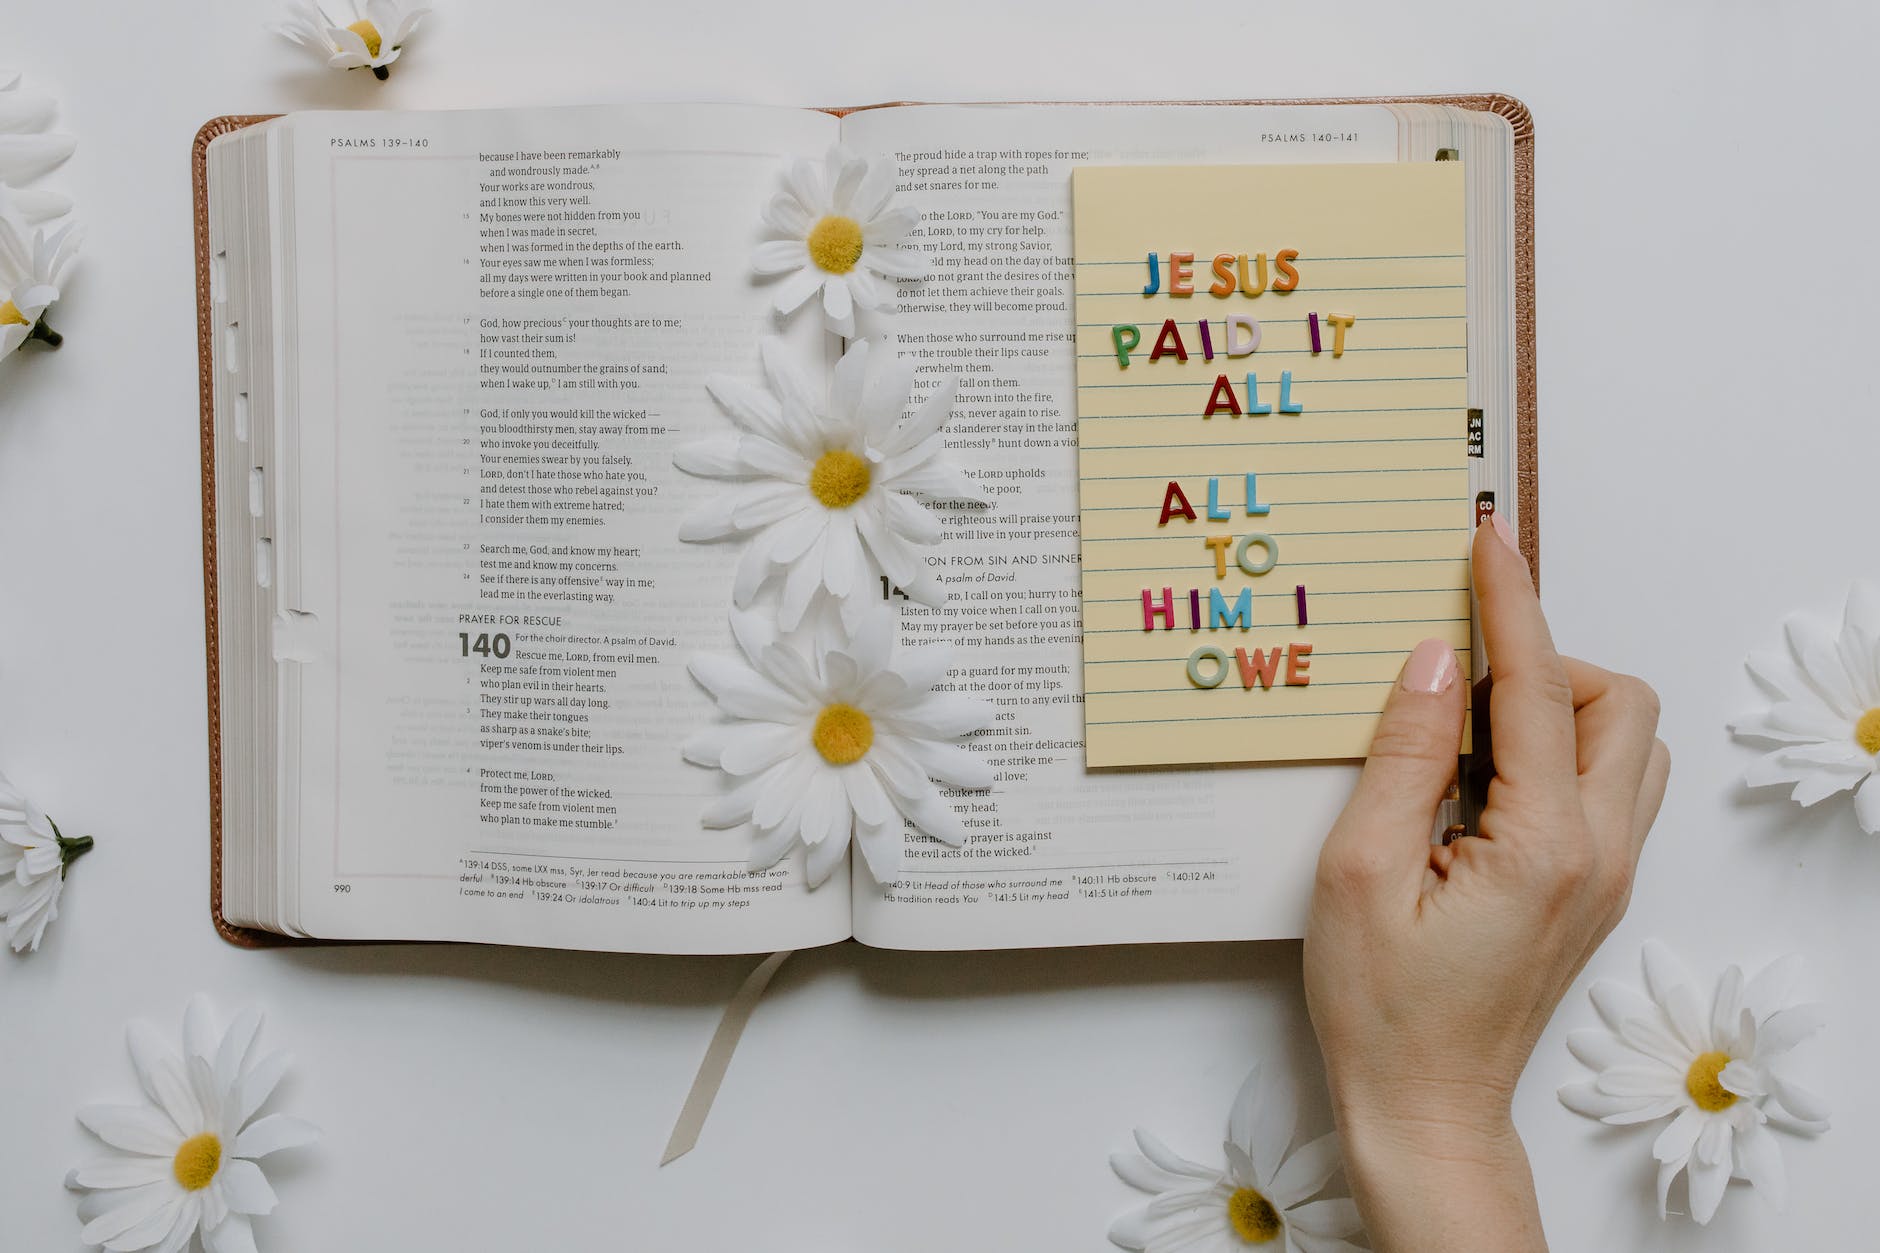 PSALMS 139–140
because I have been remarkably
and wondrously made.A,B
Your works are wondrous,
and I know this very well.
15 My bones were not hidden from you
when I was made in secret,
when I was formed in the depths of the earth.
16 Your eyes saw me when I was formless;
all my days were written in your book and planned
before a single one of them began.
17 God, how preciousC your thoughts are to me;
how vast their sum is!
18 If I counted them,
they would outnumber the grains of sand;
when I wake up,D I am still with you.
19 God, if only you would kill the wicked —
you bloodthirsty men, stay away from me —
20 who invoke you deceitfully.
Your enemies swear by you falsely.
21 LORD, don't I hate those who hate you,
and detest those who rebel against you?
22 I hate them with extreme hatred;
I consider them my enemies.
23 Search me, God, and know my heart;
test me and know my concerns.
24 See if there is any offensiveE way in me;
lead me in the everlasting way.
PRAYER FOR RESCUE
140 For the choir director. A psalm of David.
Rescue me, LORD, from evil men.
Keep me safe from violent men
2 who plan evil in their hearts.
They stir up wars all day long.
3 They make their tongues
as sharp as a snake's bite;
viper's venom is under their lips.
4 Protect me, LORD,
from the power of the wicked.
Keep me safe from violent men
who plan to make me stumble.F
A139:14 DSS, some LXX mss, Syr, Jer read because you are remarkable and won-
derful B139:14 Hb obscure C139:17 Or difficult D139:18 Some Hb mss read
I come to an end E139:24 Or idolatrous F140:4 Lit to trip up my steps
990
PSALMS 140–141
The proud hide a trap with ropes for me;
hey spread a net along the path
and set snares for me.
to the LORD, "You are my God."
LORD, to my cry for help.
LORD, my Lord, my strong Savior,
my head on the day of
LORD, do not grant the desires of the
do not let them achieve their goals.
Otherwise, they will become proud.
9 When those who surround me rise up
the trouble their lips cause
them.
hot fall on them.
thrown into the fire,
never again to rise.
a slanderer stay in the land
hunt down a
the LORD upholds
the poor,
for the needy.
righteous will praise your
will live in your presence.
FROM SIN AND
A psalm of David.
I call on you; hurry to
Listen to my voice when I call on you.
May my prayer be set before you as
the of my hands as the
up a guard for my mouth;
at the door of my lips.
turn to any evil
acts
commit sin.
feast on their delicacies.
one strike me —
love;
rebuke me —
my head;
refuse it.
Even prayer is against
the evil acts of the wicked.E
140:9 Lit Head of those who surround me B140:11 Hb obscure C140:12 Alt
Hb tradition reads You D141:5 Lit my head E141:5 Lit of them
JESUS
PAID IT
ALL
ALL
TO
HIM I
OWE
JN
AC
RM
CO